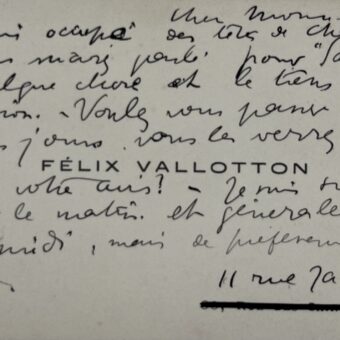 cher Mons
occupé des têtes de Ch
mais parlé pour "Sa
elque chose et le tiens
ion. - Voulez vous passer
s jours vous les verrez
FÉLIX VALLOTTON
votre avis? - Je suis
le matin. et générale
midi, mais de préféren
11 rue Ja